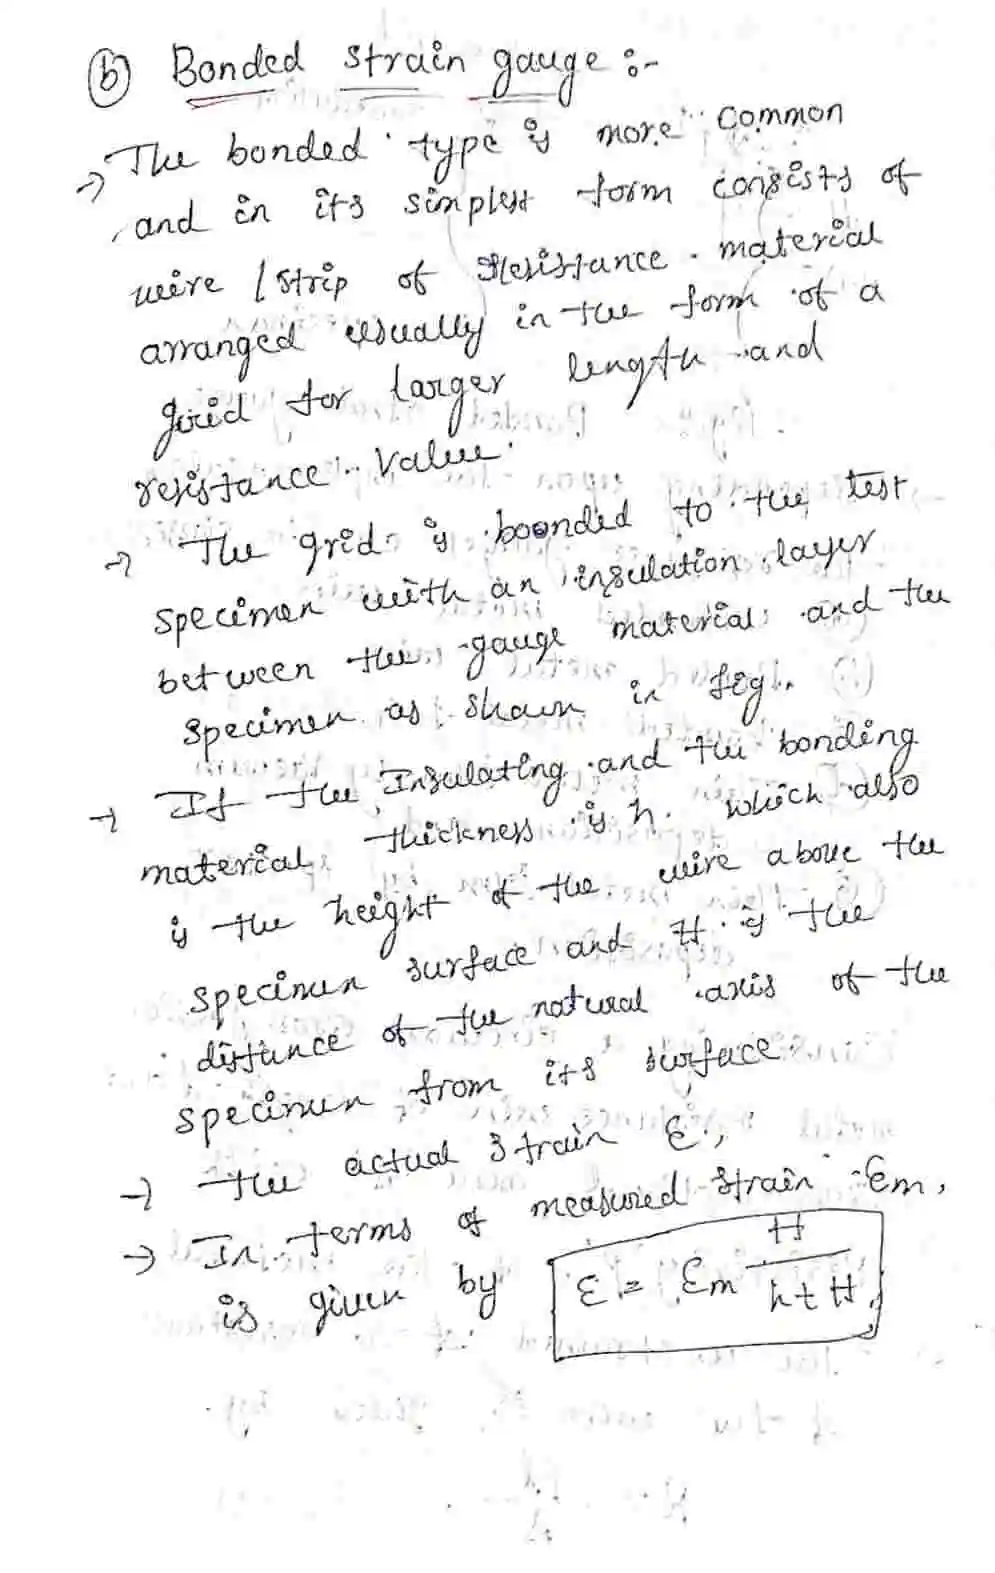 (b) Bonded strain gauge :-
→ The bonded type is more common
and in its simplest form consists of
wire / strip of resistance material
arranged usually in the form of a
grid for larger length and
resistance value.
→ The grid is boonded to the test
specimen with an insulation layer
between the gauge material and the
specimen as shown in fig.
→ If the Insulating and the bonding
material thickness is h. which also
is the height of the wire above the
specimen surface and H is the
distance of the natural axis of the
specimen from its surface.
→ the actual strain ε,
→ In terms of measured strain εm,
is given by ε = εm H / h+H